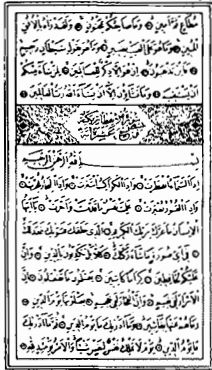 مطاع ثم امين وما صاحبكم بمجنون ولقد راه بالافق
المبين وما هو على الغيب بضنين وما هو بقول شيطان رجيم
فاين تذهبون ان هو الا ذكر للعالمين لمن شاء منكم
ان يستقيم وما تشاؤن الا ان يشاء الله رب العالمين
بسم الله الرحمن الرحيم
اذا السماء انفطرت واذا الكواكب انتثرت واذا البحار فجرت
واذا القبور بعثرت علمت نفس ما قدمت واخرت يا ايها
الانسان ما غرك بربك الكريم الذي خلقك فسويك فعدلك
في اي صورة ما شاء ركبك كلا بل تكذبون بالدين وان
عليكم لحافظين كراما كاتبين يعلمون ما تفعلون ان
الابرار لفي نعيم وان الفجار لفي جحيم يصلونها يوم الدين
وما هم عنها بغائبين وما ادريك ما يوم الدين ثم ما ادريك
ما يوم الدين يوم لا تملك نفس لنفس شيئا والامر يومئذ لله